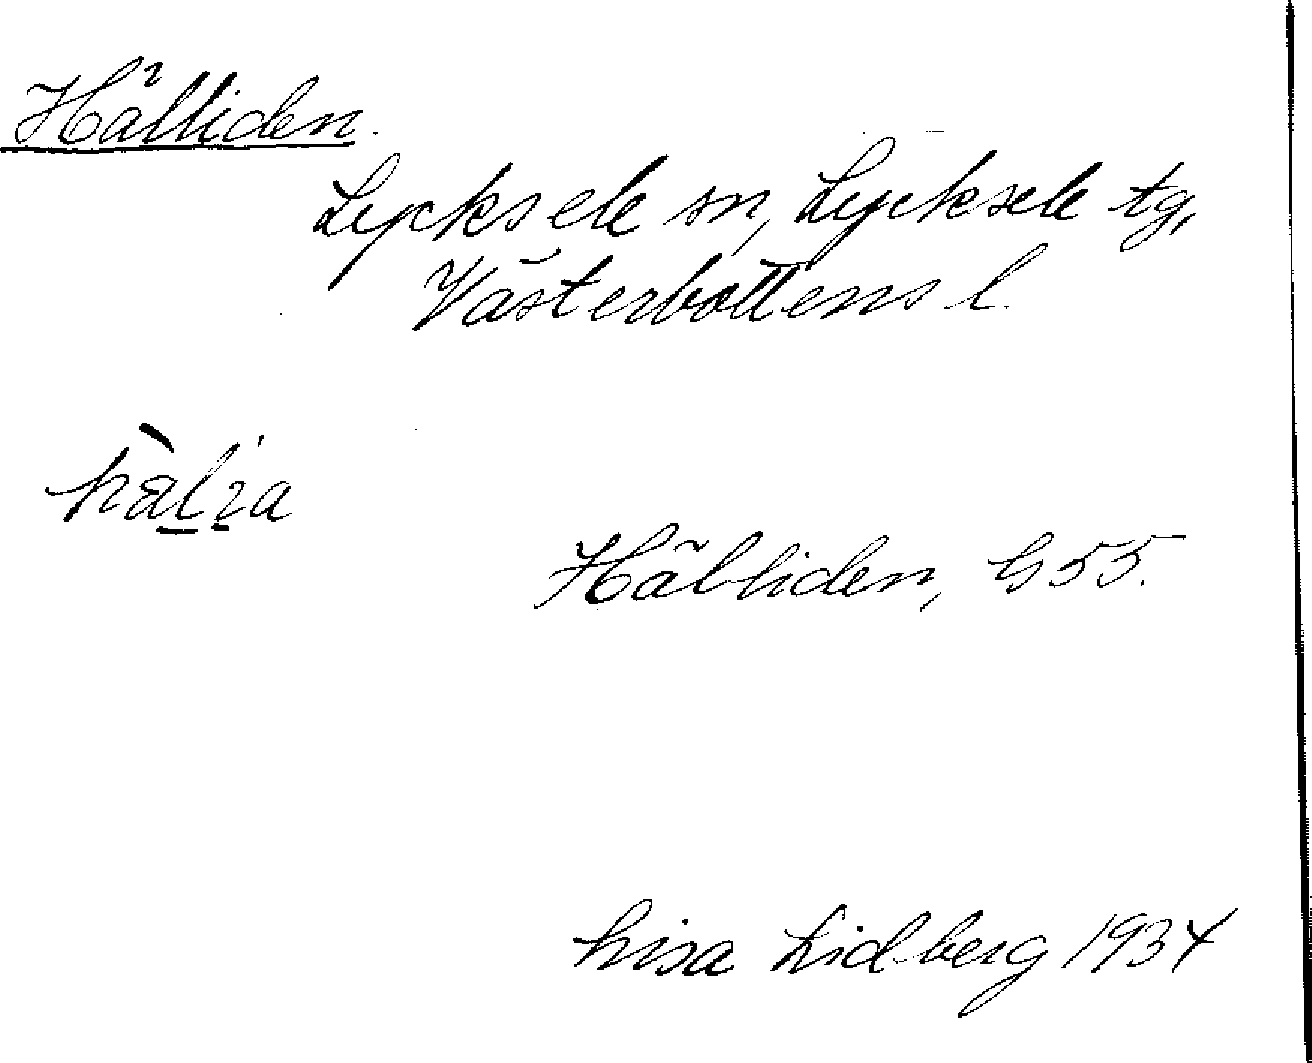 Hälliden.
Lycksele sn, Lycksele tg,
Västerbottens l.
Hälliden, G 55.
Lisa Lidberg 1934